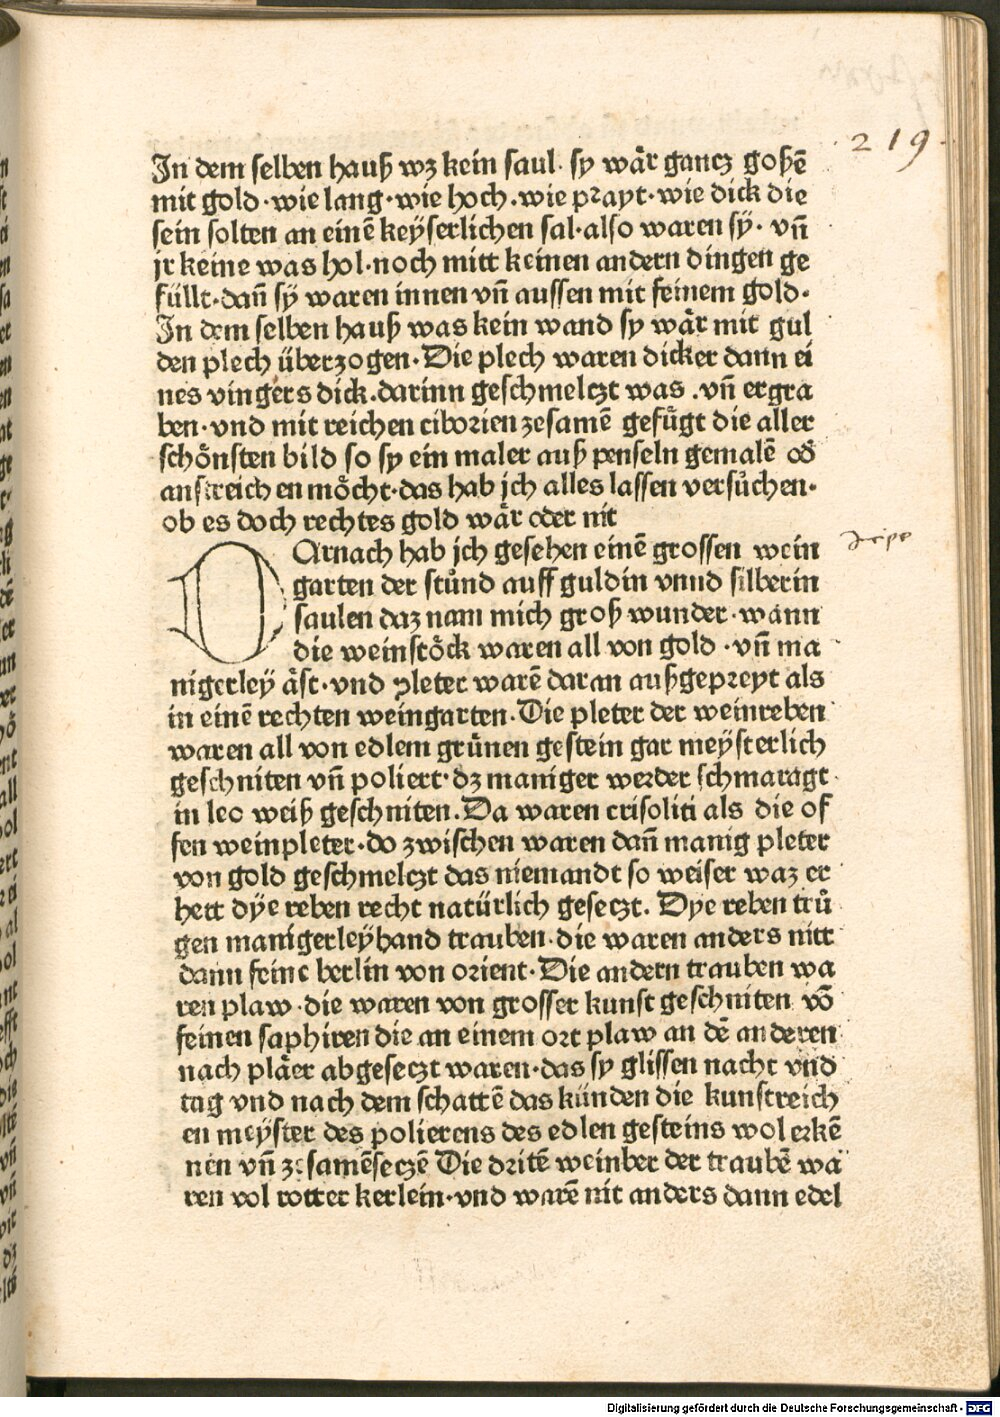 219.
In dem selben hauß wz kein saul· sy wär gancz goßẽ
mit gold·wie lang·wie hoch·wie prayt·wie dick die
sein solten an einẽ keyserlichen sal·also waren sÿ· vñ
jr keine was hol·noch mitt keinen andern dingen ge
füllt·dañ sÿ waren innen vñ aussen mit feinem gold·
In dem selben hauß was kein wand sy wär mit gul
den plech überzogen·Die plech waren dicker dann ei
nes vingers dick·darinn geschmelczt was ·vñ ergra
ben·vnd mit reichen ciborien zesamẽ gefügt die aller
schönsten bild so sy ein maler auß penseln gemalẽ od̕
anstreichen möcht·das hab jch alles lassen versůchen·
ob es doch rechtes gold wär oder nit
DArnach hab jch gesehen einẽ grossen wein
garten der stůnd auff guldin vnnd silberin
saulen daz nam mich groß wunder·wann
die weinstöck waren all von gold ·vñ ma
nigerleÿ äst·vnd pleter warẽ daran außgepreyt als
in einẽ rechten weingarten·Die pleter der weinreben
waren all von edlem grünen gestein gar meÿsterlich
geschniten vñ poliert·dz maniger werder schmaragt
in leo weiß geschniten·Da waren crisoliti als die of
fen weinpleter·do zwischen waren dañ manig pleter
von gold geschmelczt das niemandt so weiser waz er
hett dÿe reben recht natürlich geseczt. Dye reben trů
gen manigerleÿhand trauben·die waren anders nitt
dann feine berlin von orient·Die andern trauben wa
ren plaw·die waren von grosser kunst geschniten võ
feinen saphiren die an einem ort plaw an dẽ anderen
nach pläer abgeseczt waren·das sy glissen nacht vnd
tag vnd nach dem schattẽ das künden die kunstreich
en meÿster des polierens des edlen gesteins wol erkẽ
nen vñ zesamẽseczẽ Die dritẽ weinber der traubẽ wa
ren vol rotter kerlein·vnd warẽ nit anders dann edel
Digitalisierung gefördert durch die Deutsche Forschungsgemeinschaft - DFG